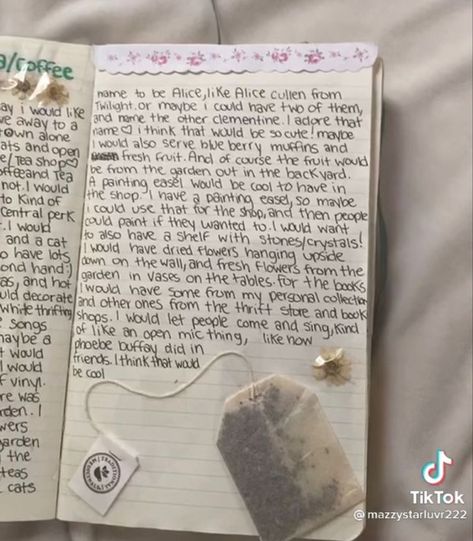 a/coffee
ay i would like
ve away to a
town alone
ats and open
e/Tea shop♡
offee and Tea
not. I would
to Kind of
central perk
t. I would
and a cat
o have lots
ond hand:)
as, and hot
uld decorate
while thrifting
songs
maybe a
t would
I would
f vinyl.
re was
rden. I
wers
garden
the
teas
cats
name to be Alice, like Alice cullen from
Twilight. or maybe i could have two of them,
and name the other clementine. I adore that
name♡ i think that would be so cute! maybe
i would also serve blue berry muffins and
fresh fruit. And of course the fruit would
be from the garden out in the backyard.
A painting easel would be cool to have in
the shop. I have a painting easel, so maybe
i could use that for the shop, and then people
could paint if they wanted to. I would want
to also have a shelf with stones/crystals!
I would have dried flowers hanging upside
down on the wall, and fresh flowers from the
garden in vases on the tables. for the books
I would have some from my personal collection
and other ones from the thrift store and book
shops. I would let people come and sing, kind
of like an open mic thing, like how
phoebe buffay did in
friends. I think that would
be cool
TRADITIONAL
TikTok
@mazzystarluvr222